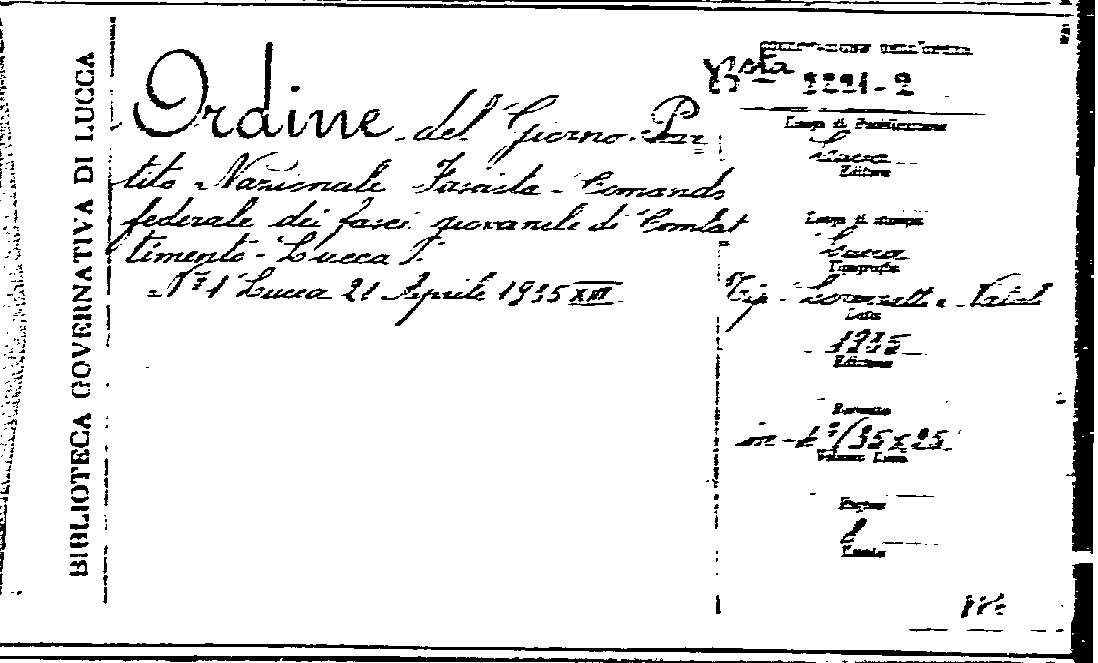 BIBLIOTECA GOVERNATIVA DI LUCCA
Ordine del Giorno-Par
tito Nazionale Fascista - Comando
federale dei fasci giovanile di Combat
timento - Lucca
N° 1 Lucca 21 Aprile 1935 XIII
Busta
2221-2
Luogo di Pubblicazione
Lucca
Editore
Luogo di stampa
Lucca
Tipografia
Tip.
Data
1935
Edizione
Formato
in-4°/35x25
Volume
Pagine
2